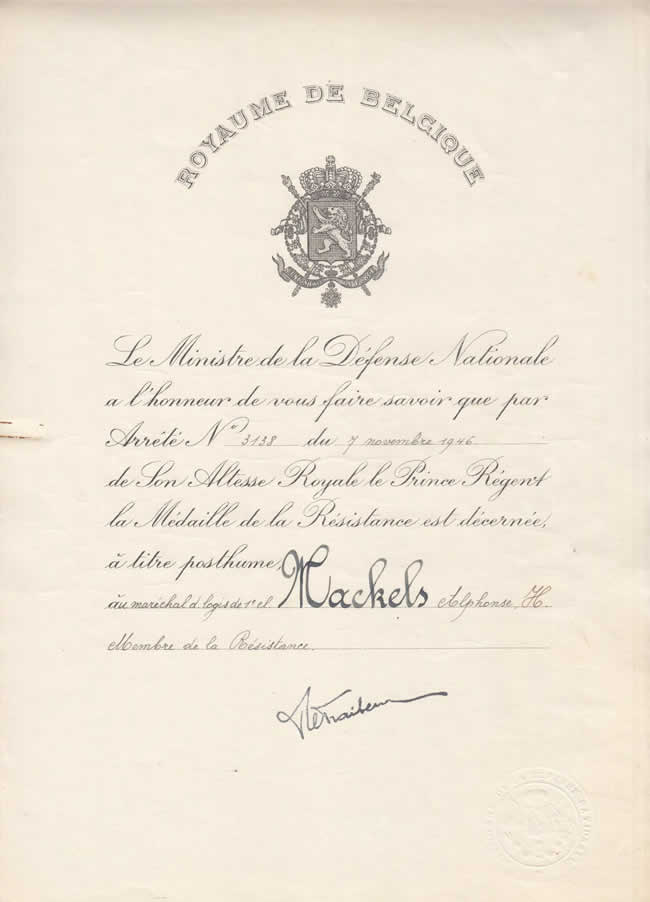 ROYAUME DE BELGIQUE
Le Ministre de la Défense Nationale
a l'honneur de vous faire savoir que par
Arrêté N° 3138 du 7 novembre 1946
de Son Altesse Royale le Prince Régent
la Médaille de la Résistance est décernée,
à titre posthume,
au maréchal d. logis de 1e cl Mackels Alphonse, H.
Membre de la Résistance.